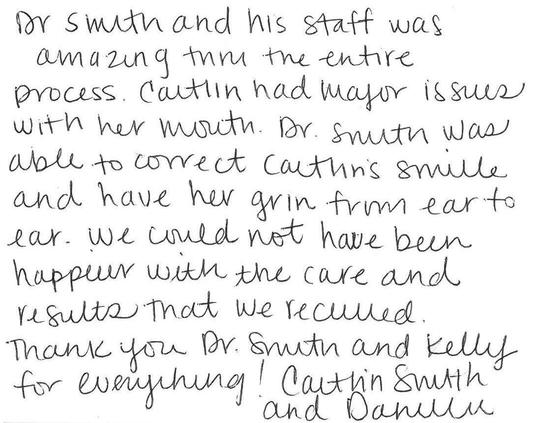 Dr Smith and his staff was
amazing thru the entire
process. Caitlin had major issues
with her mouth. Dr. Smith was
able to correct Caitlin's smile
and have her grin from ear to
ear. We could not have been
happier with the care and
results that we received.
Thank you Dr. Smith and Kelly
for everything! Caitlin Smith
and Danielle